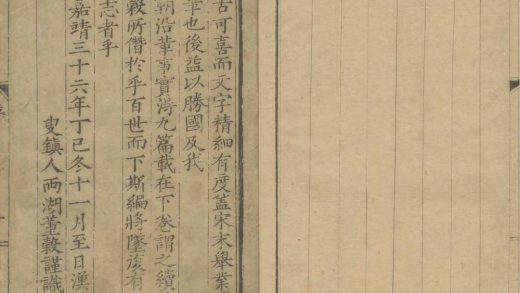 古可喜而文字精細有度蓋宋末舉業
也後益以勝國及我
朝沿革事實淂九篇載在下卷謂之續
榖所僭於乎百世而下斯編將墜復有
志者乎
嘉靖三十六年丁巳冬十一月至日漢
叟鎮人西湖董榖謹識